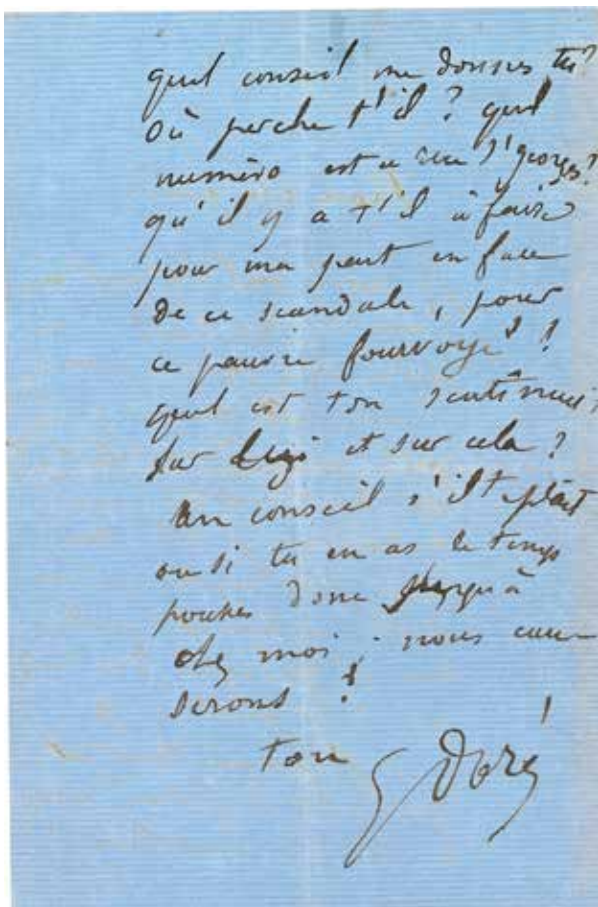 quel conseil me donnes tu?
Où perche t'il ? quel
numéro est ce rue St georges?
qu'il y a t'il à faire
pour ma part en face
de ce scandale, pour
ce pauvre fourvoyé !
quel est ton sentiment
sur lui et sur cela ?
un conseil s'il t plait
ou si tu en as le temps
pousses donc jusqu'à
chez moi ; nous cau-
serons !
ton G Doré